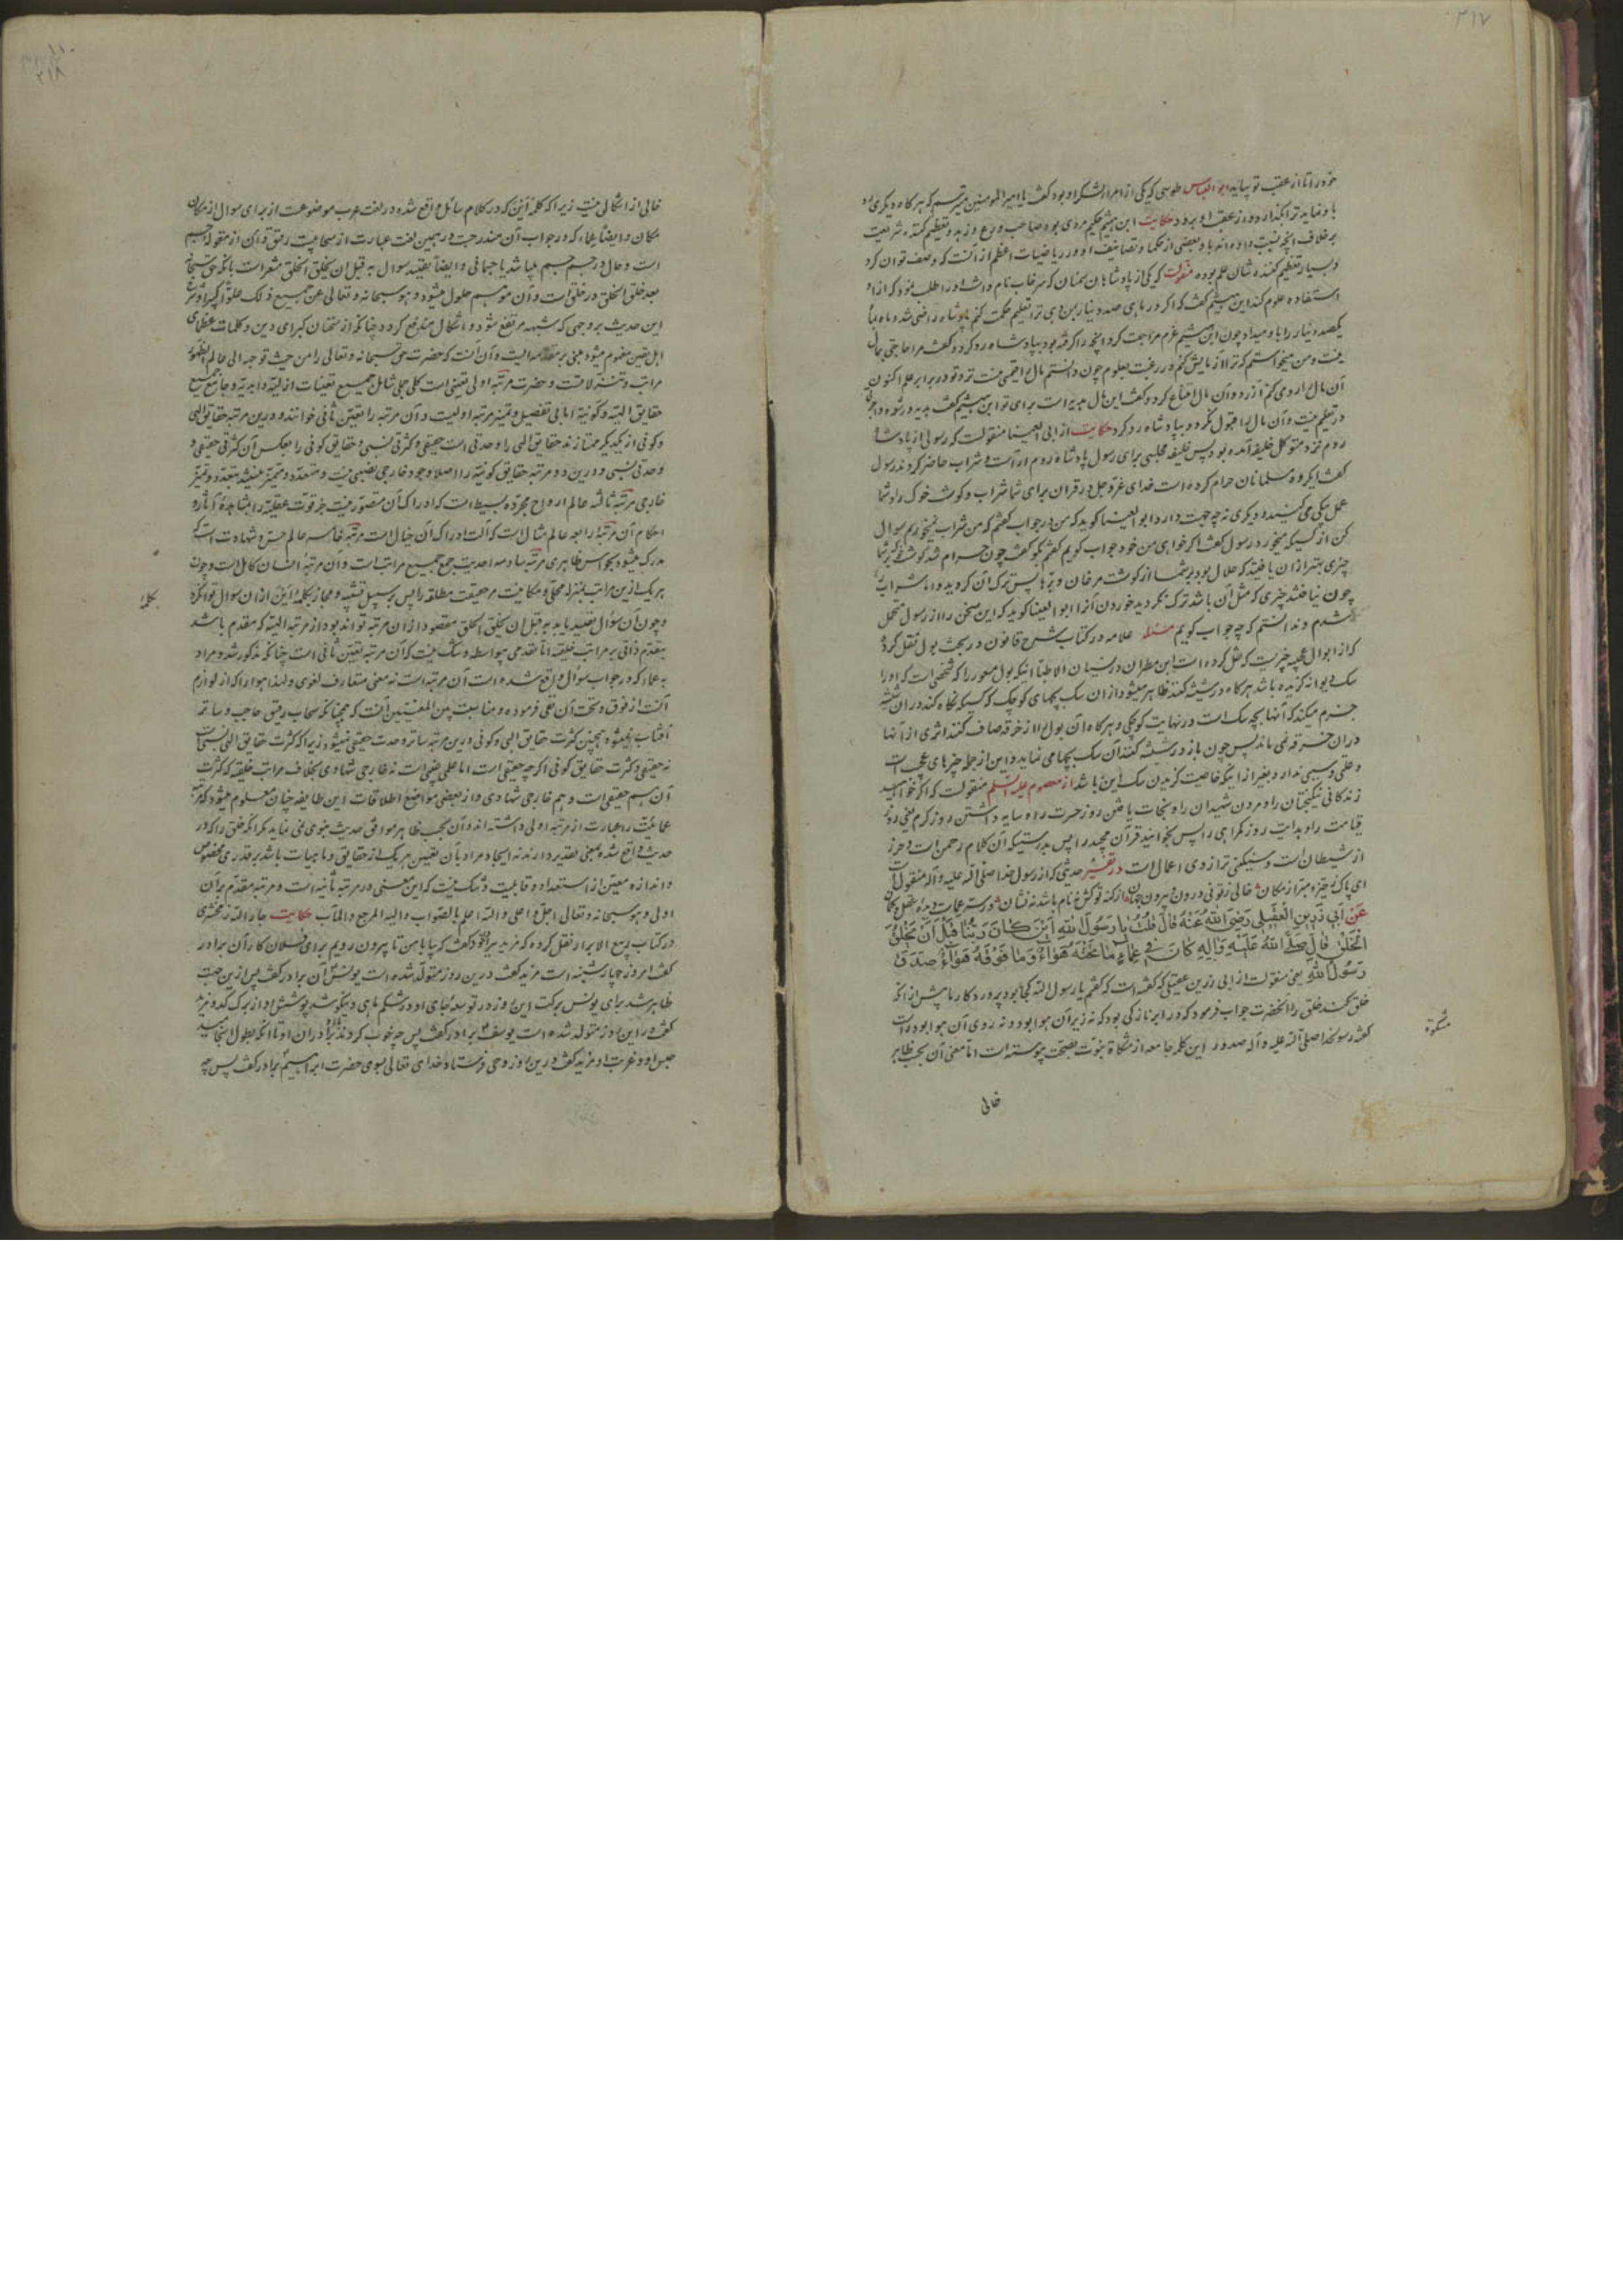 ۲۱۷
خود را تا از عقب تو بیاید ابو العباس طوسی که یکی از امراء لشکر او بود گفت یا امیر المومنین میترسم که هرگاه دیگری
با او نماید ترا بگذارد و از عقب او برود حکایت ابن هیثم حکیم مردی بود صاحب ورع و زهد و تعظیم کننده شریعت
بر خلاف آنچه نسبت داده اند باو بعضی از حکما و تصانیف او در ریاضیات اعظم از آنست که وصف توان کرد
و بسیار تعظیم کننده شان علم بوده منقولست که یکی از پادشاهان سمنان که سرخاب نام داشت او را طلب نمود که از او
استفاده علوم کند ابن هیثم گفت که اگر در ماهی صد دینار بمن دهی ترا تعلیم حکمت کنم پادشاه راضی شد و ماه بماه
یکصد دینار را باو میداد چون ابن هیثم عزم مراجعت کرد آنچه را گرفته بود بپادشاه رد کرد و گفت مرا حاجتی بمال
نیست و من میخواستم که ترا آزمایش کنم در رغبت بعلوم چون دانستم مال را قیمتی نیست نزد تو در برابر علم اکنون
آن مال را رد می کنم از رد آن مال امتناع کرد و گفت این مال هدیه است برای تو ابن هیثم گفت هدیه و رشوه و اجرتی
در تعلیم نیست و آن مال را قبول نکرد و بپادشاه رد کرد حکایت از ابی العینا منقولست که رسولی از پادشاه
روم نزد متوکل خلیفه آمده بود پس خلیفه مجلسی برای رسول پادشاه روم آراست و شراب حاضر کردند رسول
گفت ای گروه مسلمانان حرام کرده است خدای عز و جل در قران برای شما شراب و گوشت خوک را و شما
عمل بیکی می کنید و دیگری نه چه جهت دارد ابو العینا گوید که من در جواب گفتم که من شراب نمیخورم سوال
کن از کسیکه میخورد رسول گفت اگر خواهی من خود جواب گویم گفتم بگو گفت چون حرام شد گوشت خوک بر شما
چیزی بهتر از آن یافتید که حلال بود بر شما از گوشت مرغان و بره ها پس ترک آن کردید و اما شراب
چون نیافتید چیزی که مثل آن باشد ترک نکردید خوردن آنرا ابو العینا گوید که این سخن را از رسول خجل
شدم و ندانستم که چه جواب گویم مسئله علامه در کتاب شرح قانون در بحث بول نقل کرده
که از ابوال عجیبه چیزیست که نقل کرده است ابن مطران در بستان الاطبا اینکه بول معور را که شخصی است که او را
سک دیوانه گزیده باشد هرگاه در شیشه کنند ظاهر میشود از آن سک بچهای کوچک که کسیکه نگاه کند در آن شیشه
جزم میکند که آنها بچه سک است در نهایت کوچکی و هرگاه آن بول را از خرقه صاف کنند اثری از آنها
در آن خرقه نمی ماند پس چون باز در شیشه کنند آن سک بچها می نماید و این از جمله چیزهای عجیب است
و علتی و سببی ندارد بغیر از اینکه خاصیت گزیدن سک این باشد از معصوم علیه السلم منقولست که اگر خواهید
زندگانی نیکبختان را و مردن شهیدان را و نجات یافتن روز حسرت را و سایه داشتن روز گرم یعنی روز
قیامت را و هدایت روز گمراهی را پس بخوانید قرآن مجید را پس بدرستیکه آن کلام رحمن است و حرز
از شیطان است و سنگینی ترازوی اعمال است در تفسیر حدیثی که از رسول خدا صلی الله علیه و آله منقولست
ای پاک ز حیز و مبرا ز مکان خالی ز تو نی درون و بیرون جهان
عَنْ اَبی رَزینٍ العُقَیلی رَضِیَ اللهُ عَنْهُ قالَ قُلْتُ یا رَسُولَ اللهِ اَیْنَ کانَ رَبُّنا قَبْلَ اَنْ یَخْلُقَ
الخَلْقَ قالَ صَلَّی اللهُ عَلَیهِ وَآلِهِ کانَ فی عَماءٍ ما تَحْتَهُ هَواءٌ وَما فَوْقَهُ هَواءٌ صَدَقَ
رَسُولُ اللهِ یعنی منقولست از ابی رزین عقیلی که گفته است که گفتم یا رسول الله کجا بود پروردگار ما پیش از آنکه
خلق کند خلق را آنحضرت جواب فرمود که در ابر نازکی بود که نه زیر آن هوا بود و نه روی آن هوا بود راست
گفته رسولخدا صلی الله علیه و آله صدور این کلمه جامعه از مشکاة نبوت بصحت پیوسته است اما معنی آن بحسب ظاهر
مشکوة
خالی
۲۱۸
خالی از اشکالی نیست زیرا که کلمه این که در کلام سائل واقع شده در لغت عرب موضوعست از برای سوال از مکان
مکان و ایضا عماء که در جواب آن مندرجست در همین لغت عبارت از سحابیست رقیق و آن از مقوله جسم
است و حال در جسم جسم میباشد یا جسمانی و ایضا تقیید سوال به قبل ان یخلق الخلق مشعر است بانکه حق سبحانه
بعد خلق الخلق در خلق است و آن موهم حلول میشود و هو سبحانه و تعالی عن جمیع ذلک علوا کبیرا و شرح
این حدیث بر وجهی که شبهه مرتفع شود و اشکال مندفع گردد چنانکه از سخنان کبرای دین و کلمات عظمای
اهل یقین مفهوم میشود مبنی بر مقدمه ایست و آن آنست که حضرت حق سبحانه و تعالی را من حیث توجهه الی عالم الظهور
مراتب و تنزلاتست و حضرت مرتبه اولی تعینی است کلی جملی شامل جمیع تعینات ازلیه و ابدیه و جامع جمیع
حقایق الهیه و کونیه اما بی تفصیل و تمیز مرتبه اولیست و آن مرتبه را بتعین ثانی خوانند و درین مرتبه حقایق الهی
و کونی از یکدیگر ممتازند حقایق الهی را وحدتی است حقیقی و کثرتی نسبی و حقایق کونی را بعکس آن کثرتی حقیقی و
وحدتی نسبی و درین دو مرتبه حقایق کونیه را اصلا وجود خارجی نصیبی نیست و متعدد و متمیز نمیشوند بتعدد و تمیز
خارجی مرتبه ثالثه عالم ارواح مجرده بسیط است که ادراک آن متصور نیست جز قوت عقلیه را بمشاهدهٔ آثار و
احکام آن مرتبه رابعه عالم مثال است که آلت ادراک آن خیال است مرتبه خامسه عالم حس و شهادت است که
مدرک میشود بحواس ظاهری مرتبه سادسه احدیت جمع جمیع مراتب است و آن مرتبه انسان کامل است و چون
هر یک ازین مراتب بمنزله محلی و مکانیست مر حقیقت مطلقه را پس بر سبیل تشبیه و مجاز بکلمهٔ این از آن سوال توان کرد
و چون آن سؤال مقید باید به قبل ان یخلق الخلق مقصود از آن مرتبه تواند بود از مرتبه الهیه که مقدم باشد
بتقدم ذاتی بر مراتب خلقیه اما تقدمی بیواسطه و شک نیست که آن مرتبه تعین ثانی است چنانکه مذکور شد و مراد
به عماء که در جواب سؤال واقع شده است آن مرتبه است نه معنی متعارف لغوی و لهذا هوا را که از لوازم
آنست از فوق و تحت آن نفی فرموده و مناسبت بین المعنیین آنست که همچنانکه سحاب رقیق حاجب و ساتر
آفتاب نمیشود همچنین کثرت حقایق الهی و کونی درین مرتبه ساتر وحدت حقیقی نمیشود زیرا که کثرت حقایق الهی نسبیست
نه حقیقی و کثرت حقایق کونی اگر چه حقیقی است اما علمی غیبی است نه خارجی شهادی بخلاف مراتب خلقیه که کثرت
آن هم حقیقی است و هم خارجی شهادی و از بعضی مواضع اطلاقات این طایفه چنان معلوم میشود که
عمائیت را عبارت از مرتبه اولی داشته اند و آن بحسب ظاهر موافق حدیث نبوی نمی نماید مگر آنکه خلق را که در
حدیث واقع شده بمعنی تقدیر دارند نه ایجاد و مراد بآن تعیین هر یک از حقایق و ماهیات باشد بر قدری مخصوص
و اندازه معین از استعداد و قابلیت و شک نیست که این معنی در مرتبه ثانیه است و مرتبه مقدم بر آن
اولی و هو سبحانه و تعالی اجل و اعلی و الله اعلم بالصواب و الیه المرجع و المآب حکایت جار الله زمخشری
در کتاب ربیع الابرار نقل کرده که مزید برادر خود گفت که بیا با من تا بیرون رویم برای فلان کار آن برادر
گفت امروز چارشنبه است مزید گفت درین روز متولد شده است یونس آن برادر گفت پس ازین جهت
ظاهر شد برای یونس برکت این روز در توسعه جای او در شکم ماهی و نیکو شد پوشش او از برک کدو مزید
گفت در این روز متولد شده است یوسف برادر گفت پس چه خوب کردند برادران او تا آنکه بطول انجامید
حبس او و غربت او مزید گفت درین روز وحی فرستاد خدای تعالی بسوی حضرت ابراهیم برادر گفت پس چه
کلمهٔ